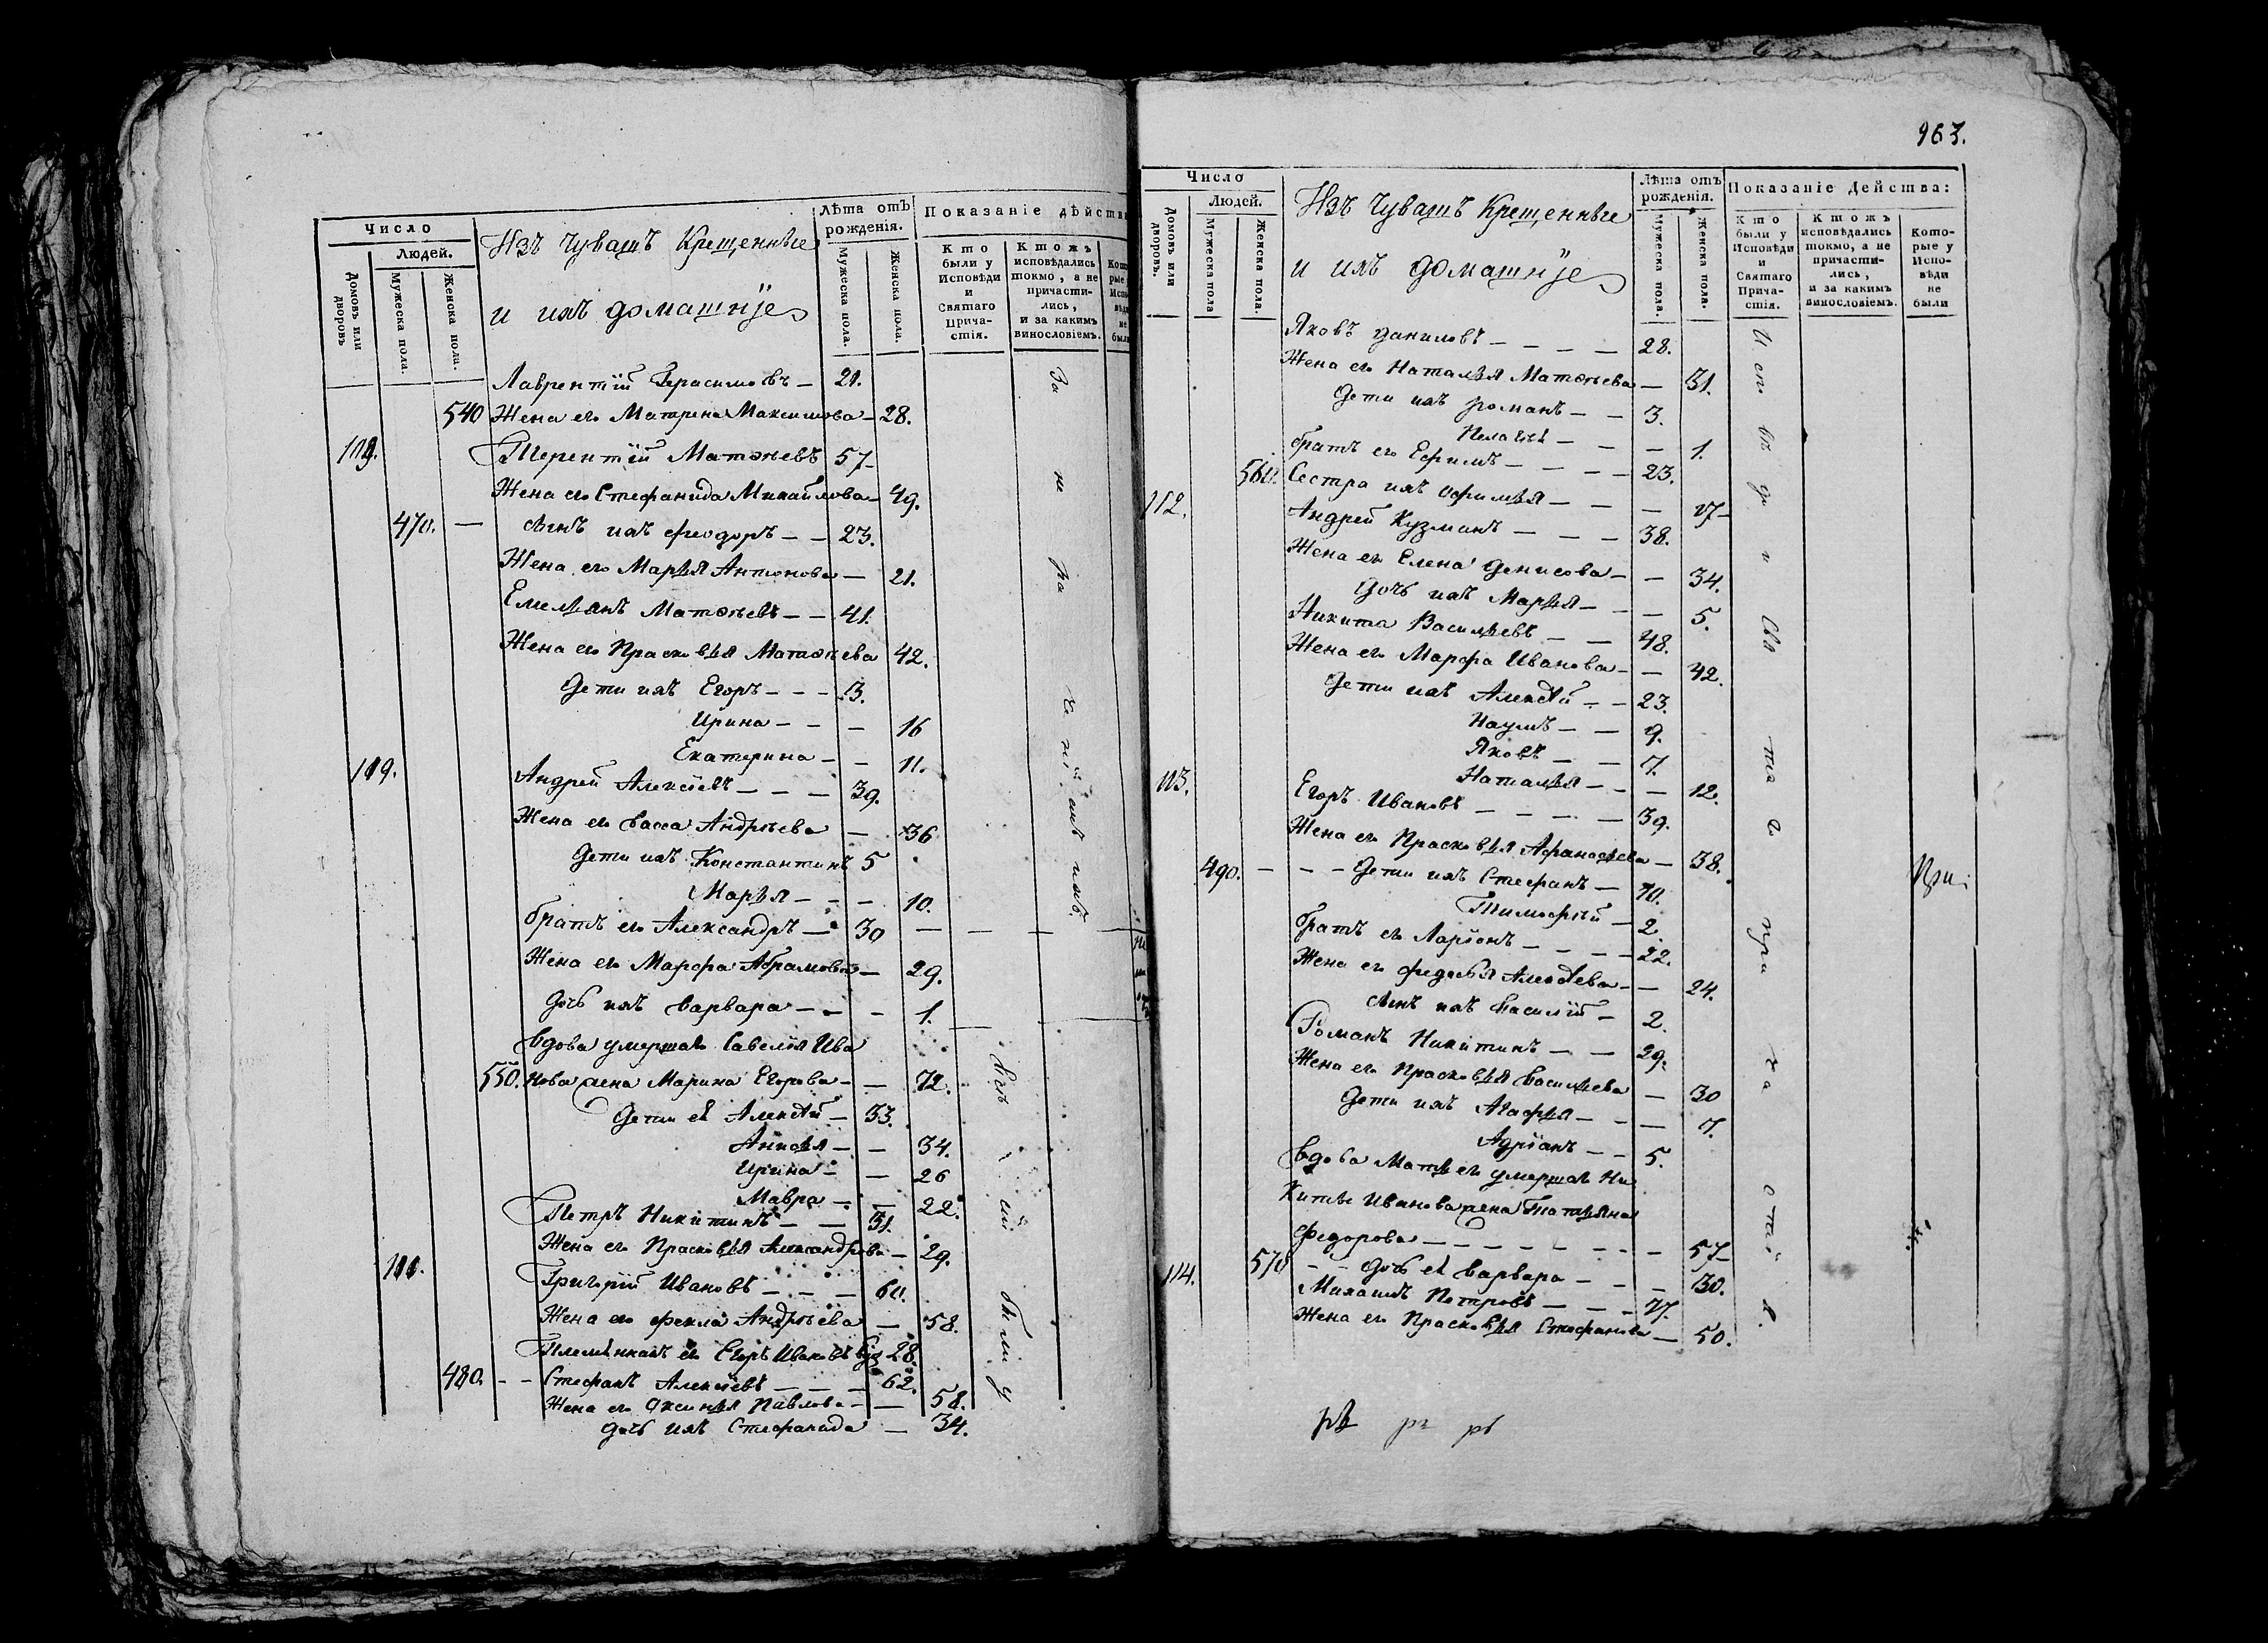 Число
Людей.
Домовъ или дворовъ
Мужеска пола.
Женска пола.
Изъ Чувашъ Крещенные
и ихъ домашніе
Лѣта отъ рожденія.
Мужеска пола.
Женска пола.
Показаніе дѣйств
Кто были у Исповѣди и Святаго Прича-стія.
Ктожъ исповѣдались токмо, а не причасти-лись, и за какимъ винословіемъ.
Лаврентій Герасимовъ — 21.
540 Жена его Матрена Максимова — 28.
Терентій Матвѣевъ 57
Жена его Стефанида Михайлова — 49.
470. — сынъ ихъ Феодоръ — — 23.
Жена его Марья Антонова — 21.
Емельянъ Матвѣевъ — — 41.
Жена его Прасковья Матвѣева 42.
Дети ихъ Егоръ — — — 13.
Ирина — — — 16
Екатерина — — 11.
Андрей Алексѣевъ — — — 39.
Жена его Васса Андреева — 36
Дети ихъ Константинъ 5
Марья — — — 10.
братъ его Александръ — 30
Жена его Марфа Абрамова — 29.
Дочь ихъ Варвара — — — 1.
Вдова умершаго Савелія Ива
550. нова жена Марина Егорова — — 72.
Дети ея Алексѣй — 33.
Анисья — — 34.
Ирина — — 26
Мавра — — 22.
Петръ Никитинъ — — 31.
Жена его Прасковья Александрова — 29.
Григорій Ивановъ — — — 60.
Жена его Фекла Андреева — 58.
Племянникъ его Егоръ Ивановъ 28.
480. — — Стефанъ Алексѣевъ — — — 62.
Жена его Аксинья Павлова — — 58.
дочь ихъ Стефанида — 34.
За не ра че ні емъ имъ.
963.
Число
Людей.
Домовъ или дворовъ.
Мужеска пола
Женска пола.
Изъ Чувашъ Крещенные
и ихъ домашніе
Лѣта отъ рожденія.
Мужеска пола.
Женска пола.
Показаніе Действа:
Кто были у Исповѣди и Святаго Прича-стія.
Ктожъ исповѣдались токмо, а не причасти-лись, и за какимъ винословіемъ.
Кото-рые у Испо-вѣди не были
Яковъ Даниловъ — — — — 28.
Жена его Наталья Матвѣева — 31.
Дети ихъ Романъ — — 3.
Пелагея — — — 1.
братъ его Ефимъ — — — — 23.
560. Сестра ихъ Офимья — — — 17
112. Андрей Кузминъ — — — 38.
Жена его Елена Денисова — — 34.
Дочь ихъ Марья — — — 5.
Никита Васильевъ — — 48.
Жена его Марфа Иванова — — 42.
Дети ихъ Алексѣй — — 23.
Наумъ — — 9.
Яковъ — — 7.
Наталья — — — 12.
113. Егоръ Ивановъ — — — — 39.
Жена его Прасковья Афанасьева — 38.
490. — — — Дети ихъ Стефанъ — 10.
Тимофѣй — 2.
братъ его Ларіонъ — — — — 22.
Жена его Федосья Алексѣева — — 24.
сынъ ихъ Василій — 2.
Романъ Никитинъ — — 29.
Жена его Прасковья Васильева — 30
Дети ихъ Агафья — — — 7.
Адріанъ — — 5.
Вдова Мать его умершаго Ни
киты Иванова жена Татьяна
Федорова — — — — — — — — 57
570 — — Дочь ея Варвара — — — 30.
114. Михаилъ Петровъ — — —
Жена его Прасковья Стефанова — 50.
При: